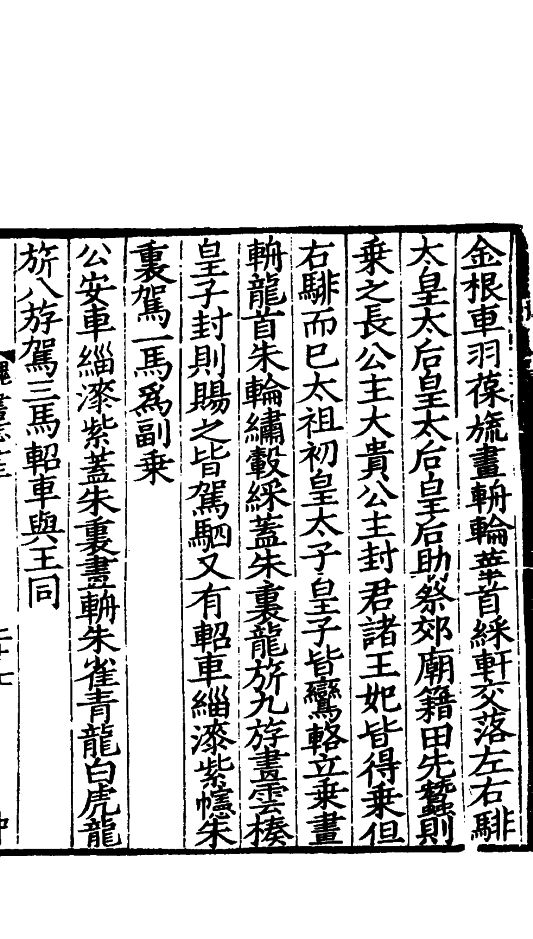 金根車羽葆旒畫輈輪華首綵軒交落左右騑
太皇太后皇太后皇后助祭郊廟籍田先蠶則
乗之長公主大貴公主封君諸王妃皆得乗但
右騑而已太祖初皇太子皇子皆鸞輅立乗畫
輈龍首朱輪繡轂綵蓋朱裏龍旂九斿畫雲榛
皇子封則賜之皆駕駟又有軺車緇漆紫幰朱
裏駕一馬爲副乗
公安車緇漆紫蓋朱裏畫輈朱雀青龍白虎龍
旂八斿駕三馬軺車與王同